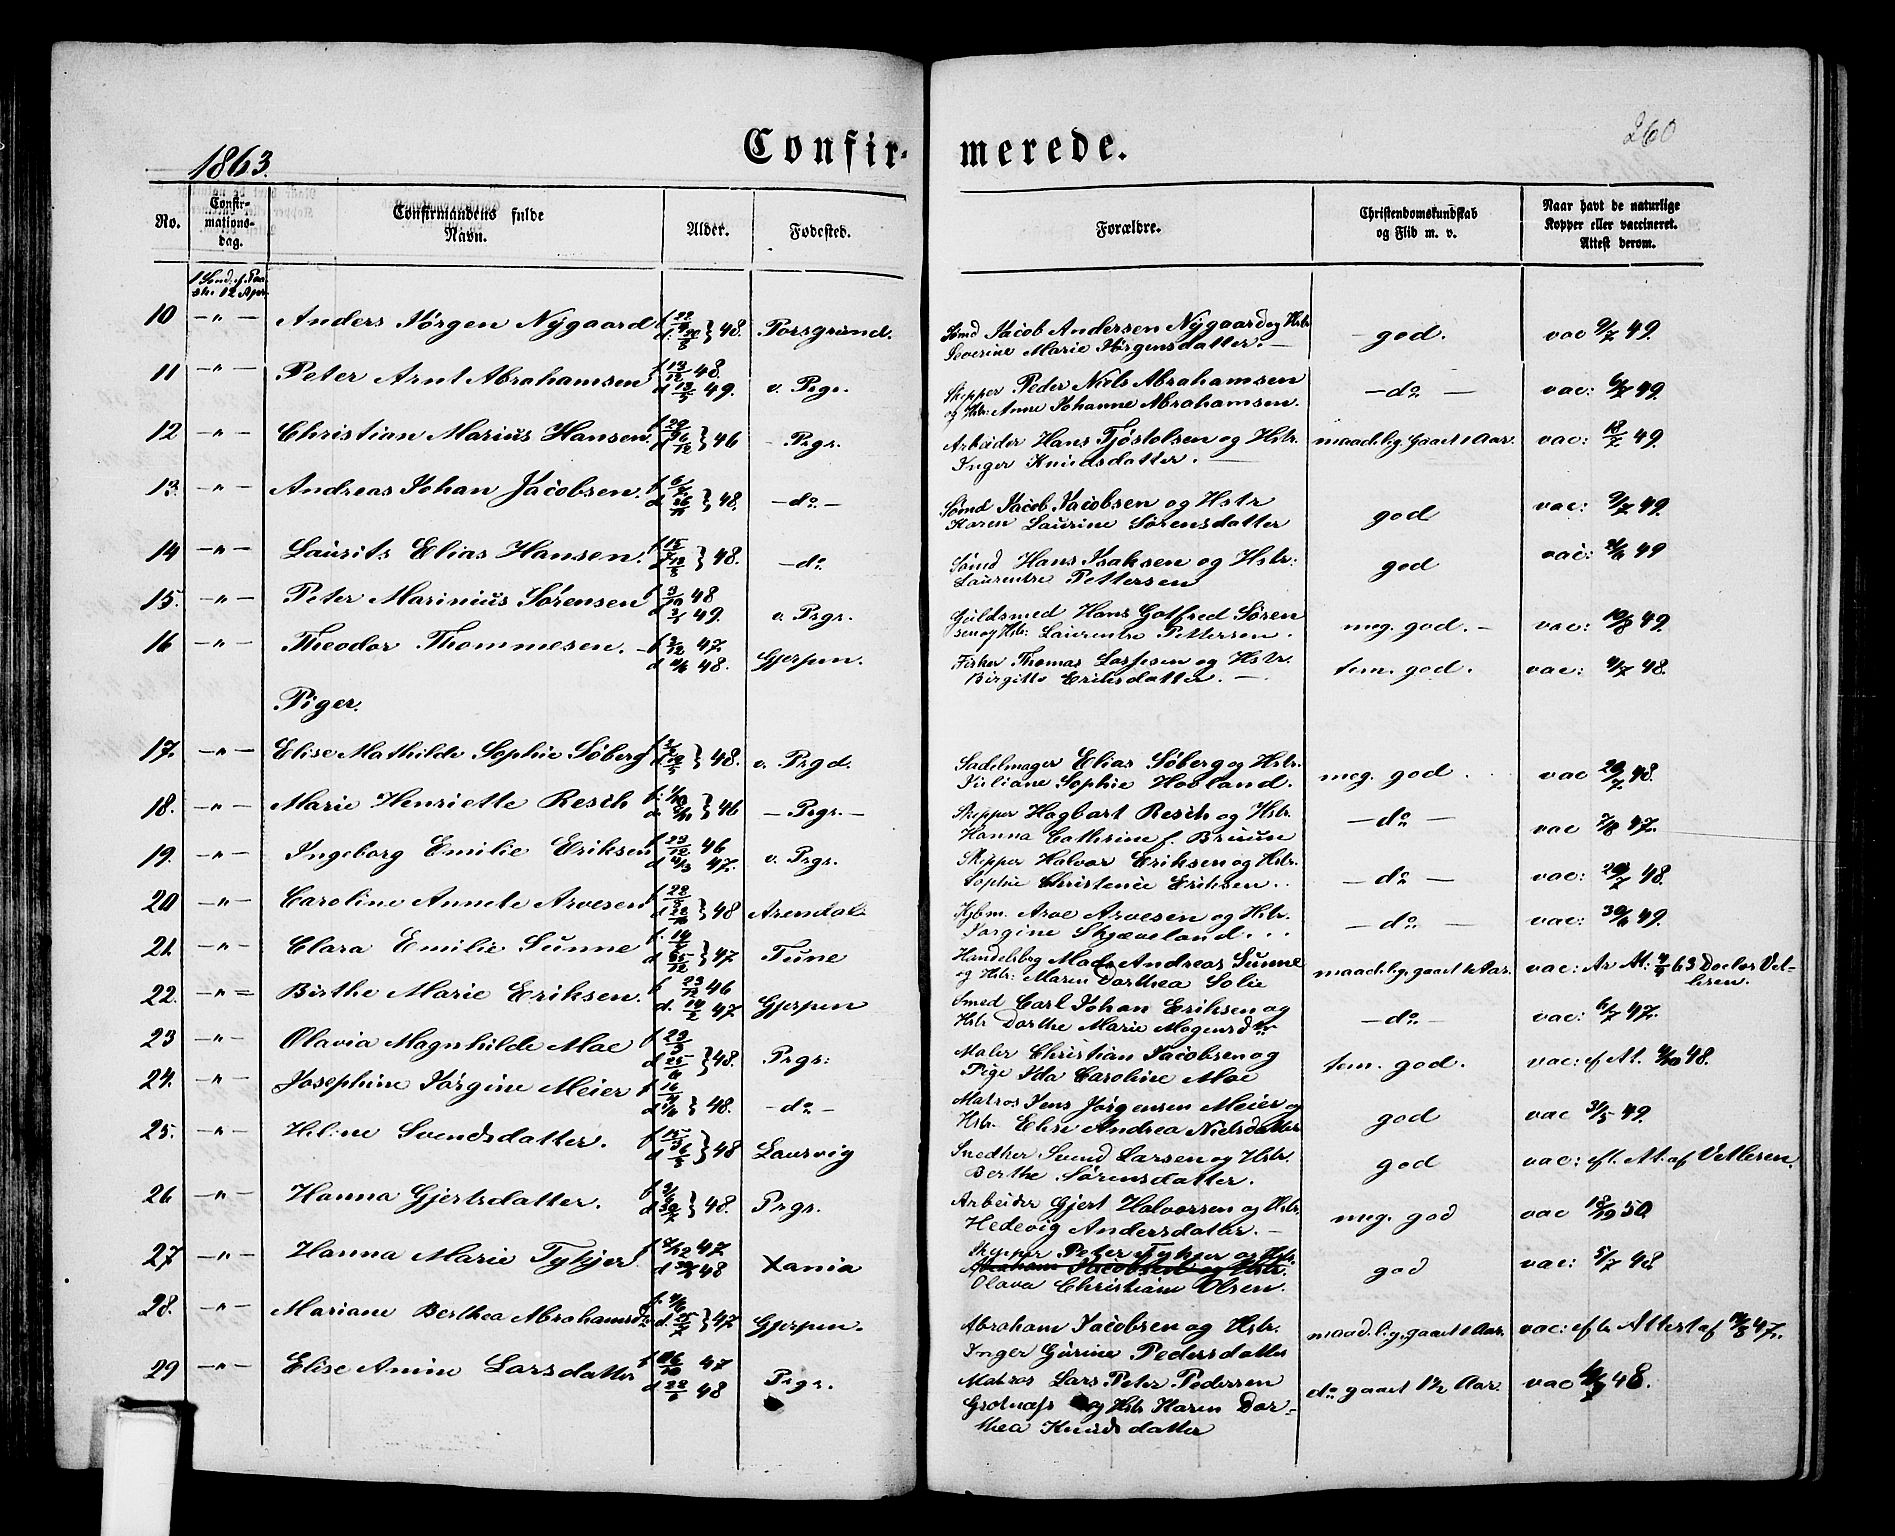 1863.
Confir-
merede.
260
No.
Confir-
mations-
dag.
Confirmandens fulde
Navn.
Alder.
Fødested.
Forældre.
Christendomskundskab
og Flid m. v.
Naar havt de naturlige
Kopper eller vaccineret.
Attest derom.
1 Sønd. ef. Paa-
ske 12 Apr.
10 -"- Anders Jørgen Nygaard 48. Porsgrund. Jacob Andersen Nygaard og Hstr
Severine Marie Jørgensdatter. god. vac 9/7 49.
11 -"- Peter Arnt Abrahamsen f 13/12 48.
d 13/5 49. v. Prgr. Skipper Peder Niels Abrahamsen
og Hstr: Anne Johanne Abrahamsen. -do- vac: 49.
12 -"- Christian Marius Hansen. 46 Prgr. Arbeider Hans Tjøstolsen og Hstr.
Inger Knudsdatter. maadelig, gaaet 1 Aar. vac: 18/7 49.
13. -"- Andreas Johan Jacobsen. 48. -do- Jacob Jacobsen og Hstr
Karen Laurine Sørensdatter god vac: 9/7 49.
14 -"- Laurits Elias Hansen. 48. -do. Hans Isaksen og Hstr:
Laurentze Pettersen god vac: 49
15. -"- Peter Marinius Sørensen f 3/10 48
d 2/1 49. v. Prgr. Guldsmed Hans Gotfred Søren
sen og Hstr: Laurentze Pettersen. meg. god. - vac: 10/8 49.
16 -"- Theodor Thommesen. f 3/12 47.
d 48. Gjerpen. Fisker Thomas Larssen og Hstr.
Birgitte Eriksdatter. tem. god. vac: 4/7 48.
Piger.
17. -"- Elise Mathilde Sophie Søberg 48. v. Prgd. Sadelmager Elias Søberg og Hstr.
Juliane Sophie Hovland. meg. god. vac 20/7 48.
18. -"- Marie Henriette Resch 46 -Prgr.- Skipper Hagbart Resch og Hstr.
Hanna Cathrine f. Bruun -do- vac 7/8 47.
19. -"- Ingeborg Emilie Eriksen f 23/12 46
d 47. v. Prgr. Skipper Halvor Eriksen og Hstr.
Sophie Christence Eriksen. -do- vac: 20/7 48.
20 -"- Caroline Annete Arvesen 48 Arendal Kjbm. Arve Arvesen og Hstr.
Jorgine Skjæveland. -do- vac: 49.
21. -"- Clara Emilie Sunne 47 Tune Handelsbg Mads Andreas Sunne
og Hstr: Maren Dorthea Solie maadelig, gaaet Aar. vac: At: 63 Doctor Vet-
lesen.
22. -"- Birthe Marie Eriksen. f 23/12 46
d. 14/2 47 Gjerpen Smed Carl Johan Eriksen og
Hstr Dorthe Marie Mogensdtr -do- vac: 6/7 47.
23 -"- Olavia Magnhilde Moe 48. Prgr: Maler Christian Jacobsen og
Pige Ida Caroline Moe tem. god. vac: ef At. 48.
24. -"- Josephine Jørgine Meier 48. -do- Matros Jens Jørgensen Meier og
Hstr. Elise Andrea Nielsdatter god vac 31/5 49.
25. -"- Heline Svendsdatter. 48 Laurvig Snedker Svend Larsen og Hstr.
Berthe Sørensdatter. god vac: eft. At. af Vetlesen.
26 -"- Hanna Gjertsdatter. 48. Prgr. Arbeider Gjert Halvorsen og Hstr.
Hedevig Andersdatter. meg. god vac 18/10 50
27 -"- Hanna Marie Tykjer f 47.
d 48 Xania Skipper Peter Tykjer og Hstr:
Abraham Jacobsen og Hstr.
Olava Christiane Olsen. god vac: 5/7 48
28. -"- Mariane Berthea Abrahamsdtr 47 Gjerpen. Abraham Jacobsen og Hstr.
Inger Gurine Pedersdatter maadelig, gaaet 1 Aar. vac: efter Attest af 47.
29 -"- Elise Amine Larsdatter f 16/10 47
d 48 Prgr. Matros Lars Peter Pedersen
Grotnæss og Hstr Karen Dor-
thea Knudsdatter do gaaet 1½ Aar. vac 48.